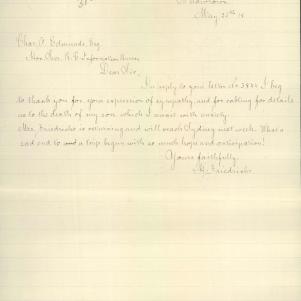 May 25th 18
Chas. A. Edmunds, Esq
Hon. Sec. R. C. Information Bureau
Dear Sir,
In reply to your letter No I beg
to thank you for your expression of sympathy and for cabling for details
as to the death of my son which I await with anxiety.
Mrs. Friedrichs is returning and will reach Sydney next week. What a
sad end to a trip begun with so much hope and anticipation!
Yours faithfully.
Friedrichs